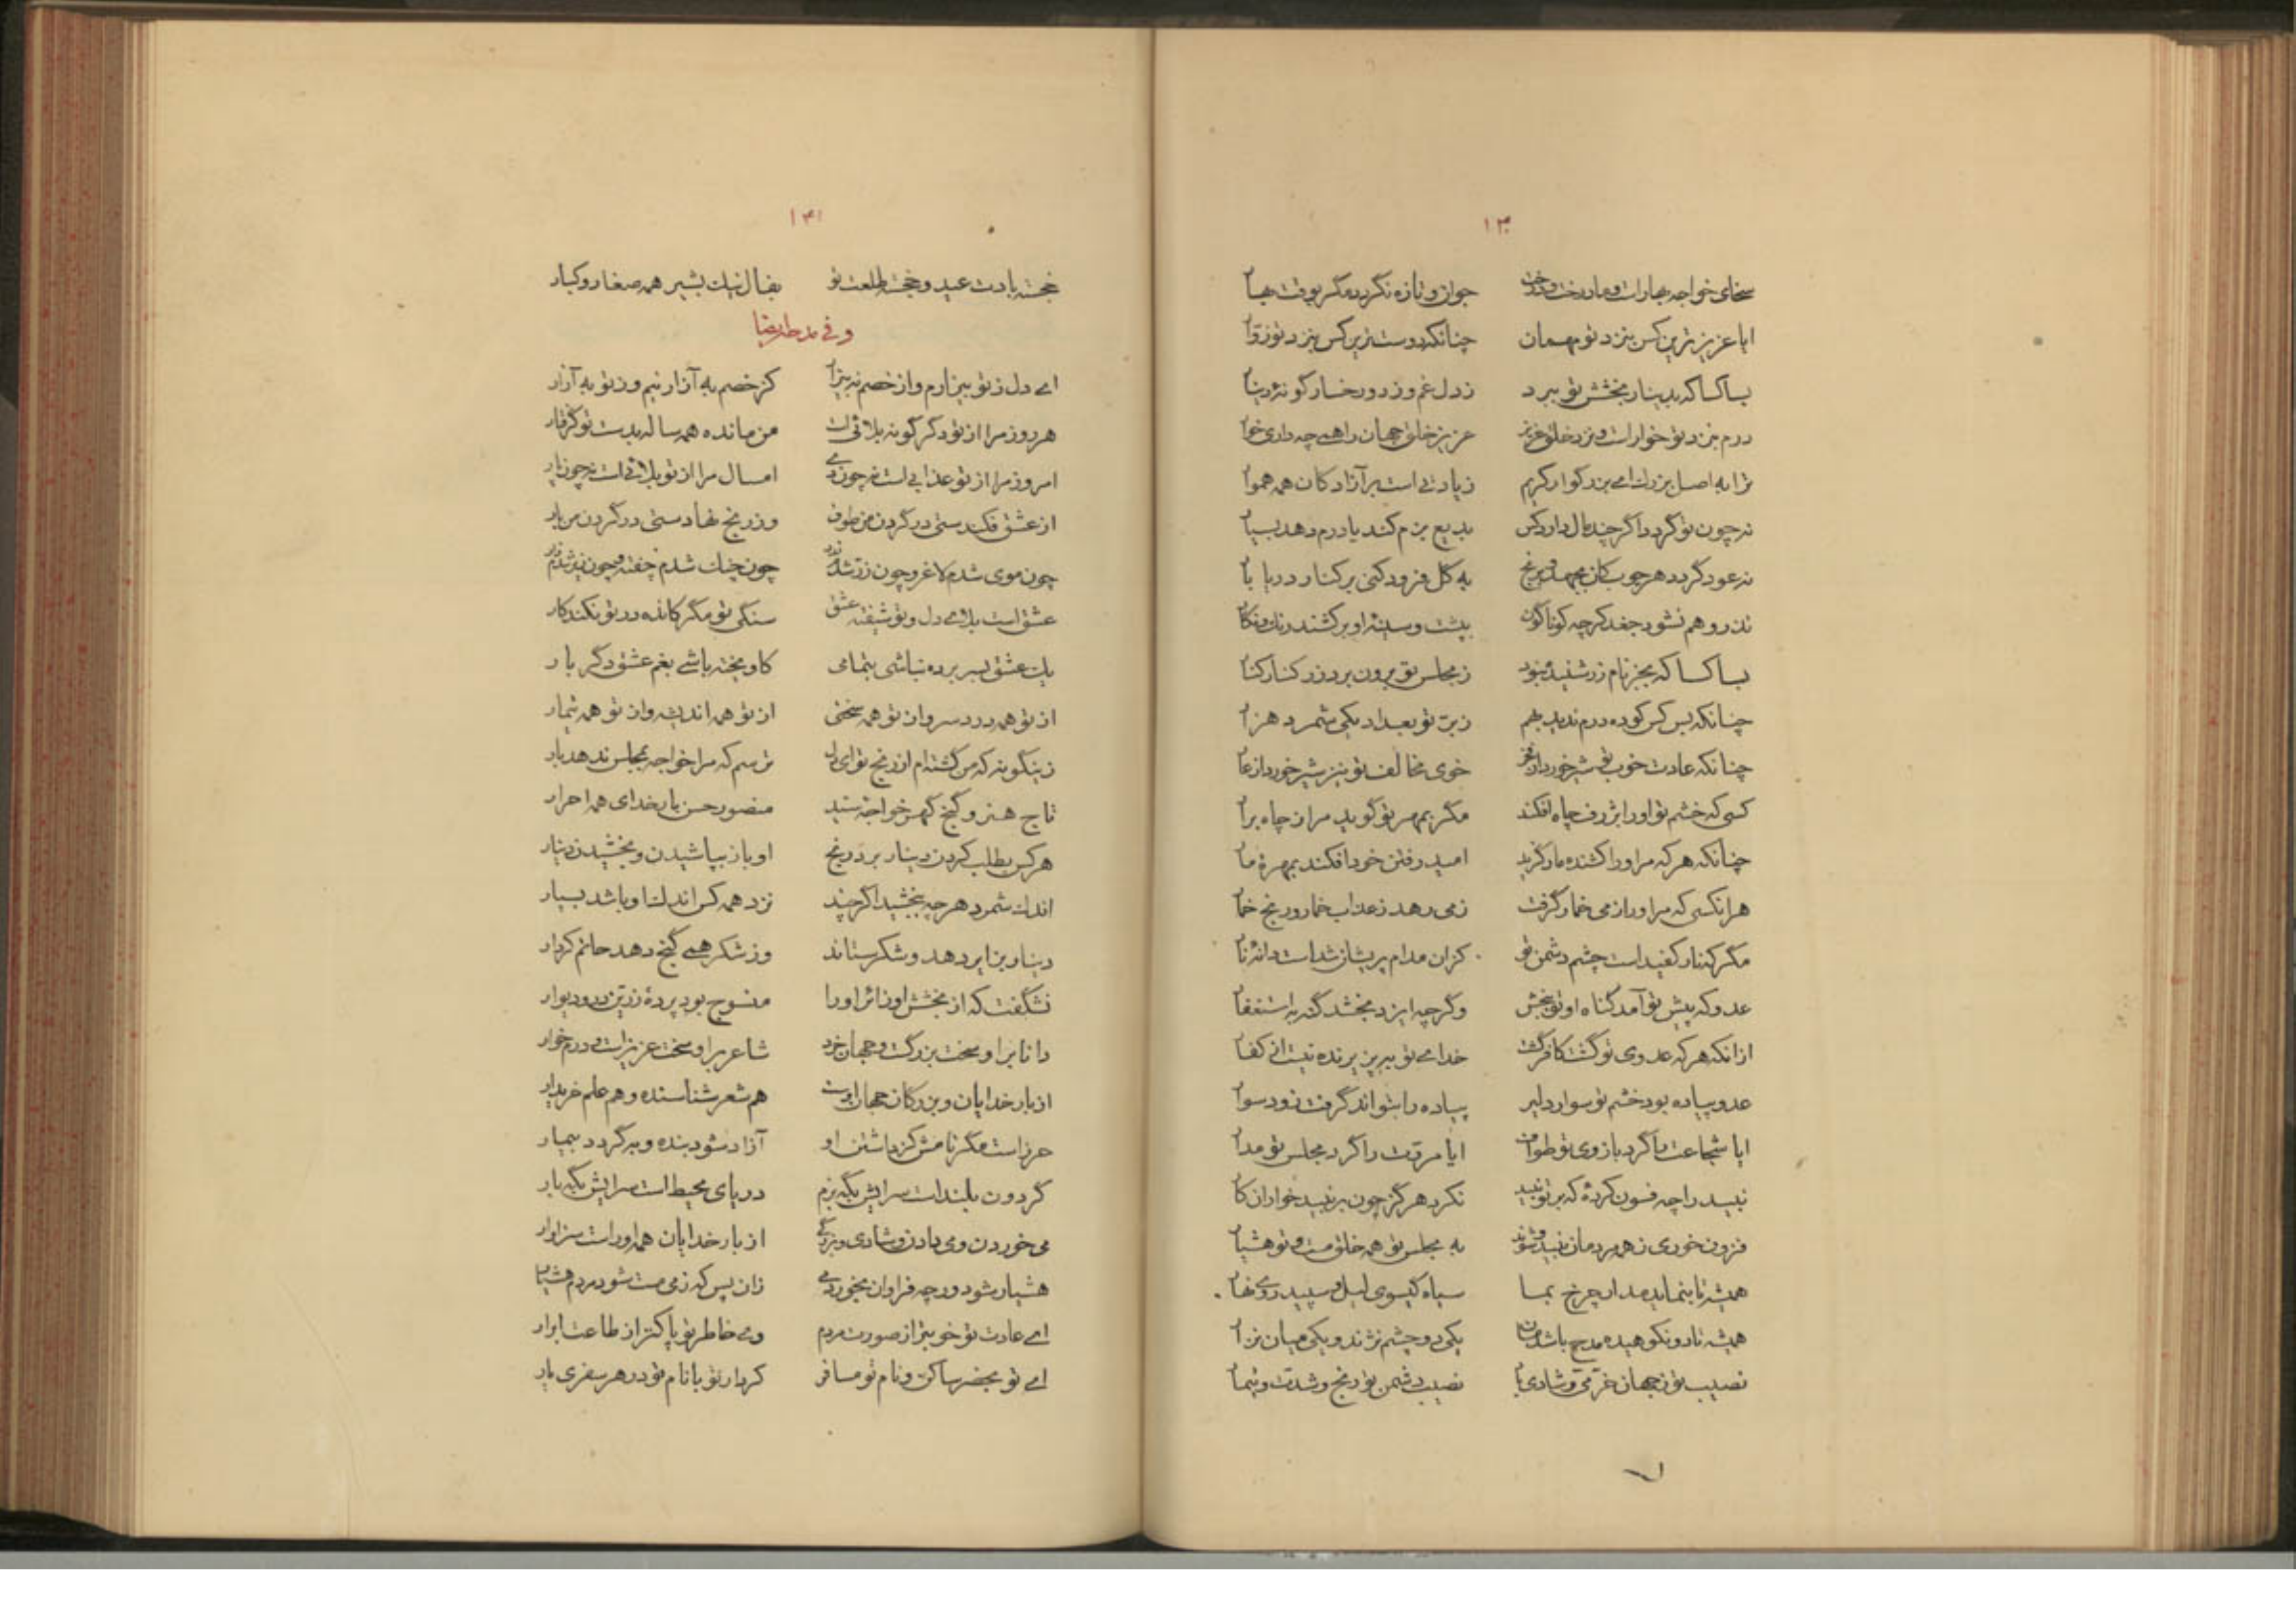 ۱۳۰
سخای خواجه بهار است و ما درخت و درخت جوان و تازه نگردد مگر بوقت بهار
ایا عزیزترین کس بنزد تو مهمان چنانکه دوست ترین کس بنزد تو زوار
بسا کسا که بدینار بخشش تو ببرد ز دل غم و ز دو رخسار گونه دینار
درم بنزد تو خوار است و نزد خلق عزیز عزیز خلق جهان را همی چه داری خوار
ترا به اصل بزرگ ای بزرگوار کریم زیادتی است بر آزادگان همه هموار
نه چون تو گردد اگر چند مال دارد کس بدیع بزم کند یا درم دهد بسیار
نه عود گردد هر چوب کان بجهد و برنج به گل فرود کنی بر کنار دریا بار
تذرو هم نشود جغد گرچه گوناگون بپشت و سینه او بر کشند رنگ و نگار
بسا کسا که بجز نام زر شنیده نبود ز مجلس تو برون برد زر کنار کنار
چنانکه بس کس کو ده درم ندید بهم ز بر تو بعداد یکی شمرد هزار
چنانکه عادت خوب تو شیر خورد از فخر خوی مخالف تو نیز شیر خورد از عار
کسی که خشم تو او را بژرف چاه افکند مگر بمهر تو گوید مرا ز چاه برآر
چنانکه هر که مر او را کشنده مار گزید امید رفتن خود افکند بمهره مار
هر انکسی که مر او را ز می خمار گرفت ز می رهد ز عذاب خمار و رنج خمار
مگر که نار کفیدا ست چشم دشمن تو کزان مدام پریشان شداست دانه نار
عدو که پیش تو آمد گناه او تو ببخش وگرچه ایزد بخشد گنه به استغفار
ازانکه هر که عدوی تو گشت کافر گشت خدای تو بپذیرنده نیست از کفار
عدو پیاده بود خشم تو سوار دلیر پیاده را بتواند گرفت زود سوار
ایا شجاعت را گرد بازوی تو طواف ایا مروت را گرد مجلس تو مدار
نبید را چه فسون کرده که بر تو نبید نکرد هرگز چون بر نبید خواران کار
فزون خوری ز همه مردمان نبید و شوند به مجلس تو همه خلق مست و تو هشیار
همیشه تا بنماید مدار چرخ بما سیاه گیسوی لیل و سپید روی نهار
نصیب تو ز جهان خرمی و شادی باد نصیب دشمن تو رنج و شدت و تیمار
۱۳۱
خجسته بادت عید و خجسته طلعت تو بفال نیک بشیر همه صغار و کبار
و فی مدحه ایضا
ای دل ز تو بیزارم و از خصم نه بیزار کز خصم به آزار نیم وز تو به آزار
هر روز مرا از تو دگرگونه بلائی است من مانده همه ساله بدست تو گرفتار
امروز مرا از تو عذابی است نه چون دی امسال مرا از تو بلائی است نه چون پار
از عشق فکندستی در گردن من طوف وز رنج نهادستی در گردن من بار
چون موی شدم لاغر و چون زر شدم زرد چون چنگ شدم چفته و چون زیر شدم زار
عشق است بلای دل و تو شیفته عشق سنگی تو مگر کانده در تو نکند کار
یک عشق بسر برده نباشی بتمامی کاویخته باشی بغم عشق دگر بار
از تو همه درد سر و از تو همه سختی از تو همه اندیشه و از تو همه تیمار
زینگونه که من گشته ام از رنج تو ای دل ترسم که مرا خواجه بمجلس ندهد بار
تاج هنر و گنج گهر خواجه سید منصور حسن بار خدای همه احرار
هر کس بطلب کردن دینار برد رنج او باز بپاشیدن و بخشیدن دینار
اندک شمرد هر چه ببخشید اگر چند نزد همه کس اندک او باشد بسیار
دینار بزایر دهد و شکر ستاند وز شکر همی گنج دهد حاتم کردار
نشگفت که از بخشش او زائر او را منسوج بود پرده زرین در و دیوار
دانا بر او سخت بزرگست و جهان خرد شاعر بر او سخت عزیز است و درم خوار
از بار خدایان و بزرگان جهان اوست هم شعر شناسنده و هم علم خریدار
حرزاست مگر نامش کز داشتن او آزاد شود بنده و به گردد بیمار
گردون بلند است سرایش بگه بزم دریای محیط است سرایش بگه بار
می خوردن و می دادن و شادی و بزرگی از بار خدایان همه او راست سزاوار
هشیار شود ورچه فراوان بخورد می زان پس که ز می مست شود مردم هشیار
ای عادت تو خوبتر از صورت مردم وی خاطر تو پاکتر از طاعت ابرار
ای تو بحضر ساکن و نام تو مسافر کردار تو با نام تو در هر سفری یار